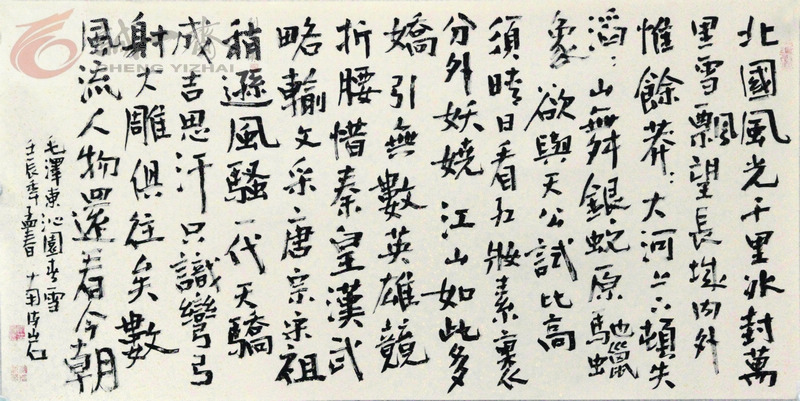 北國風光千里冰封萬
里雪飄望長城內外
惟餘莽々大河上下頓失
滔々山舞銀蛇原馳蠟
象欲與天公試比高
須晴日看紅妝素裹
分外妖嬈江山如此多
嬌引無數英雄競
折腰惜秦皇漢武
略輸文采唐宗宋祖
稍遜風騷一代天驕
成吉思汗只識彎弓
射大雕俱往矣數
風流人物還看今朝
毛澤東沁園春雪
壬辰年孟春
CHENG YIZHAI